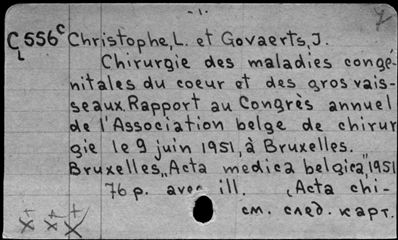 - 1 -
C556c Christophe, L. et Govaerts, J.
L
Chirurgie des maladies congé-
nitales du coeur et des gros vais-
seaux. Rapport au Congrès annuel
de l'Association belge de chirur
gie le 9 juin 1951, à Bruxelles.
Bruxelles, "Acta medica belgica," 1951
76 p. avec ill. (Acta chi-
см. след. карт.